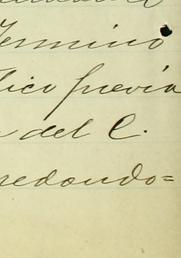 Termino
lico previa
del C.
redondo=